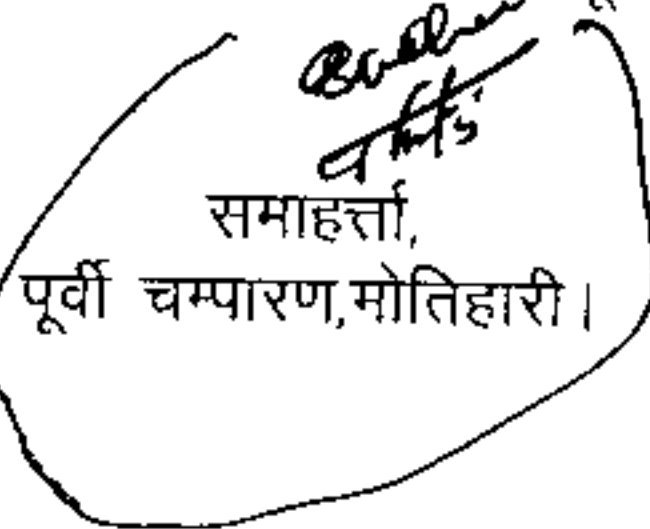 समाहर्त्ता,
पूर्वी चम्पारण,मोतिहारी।